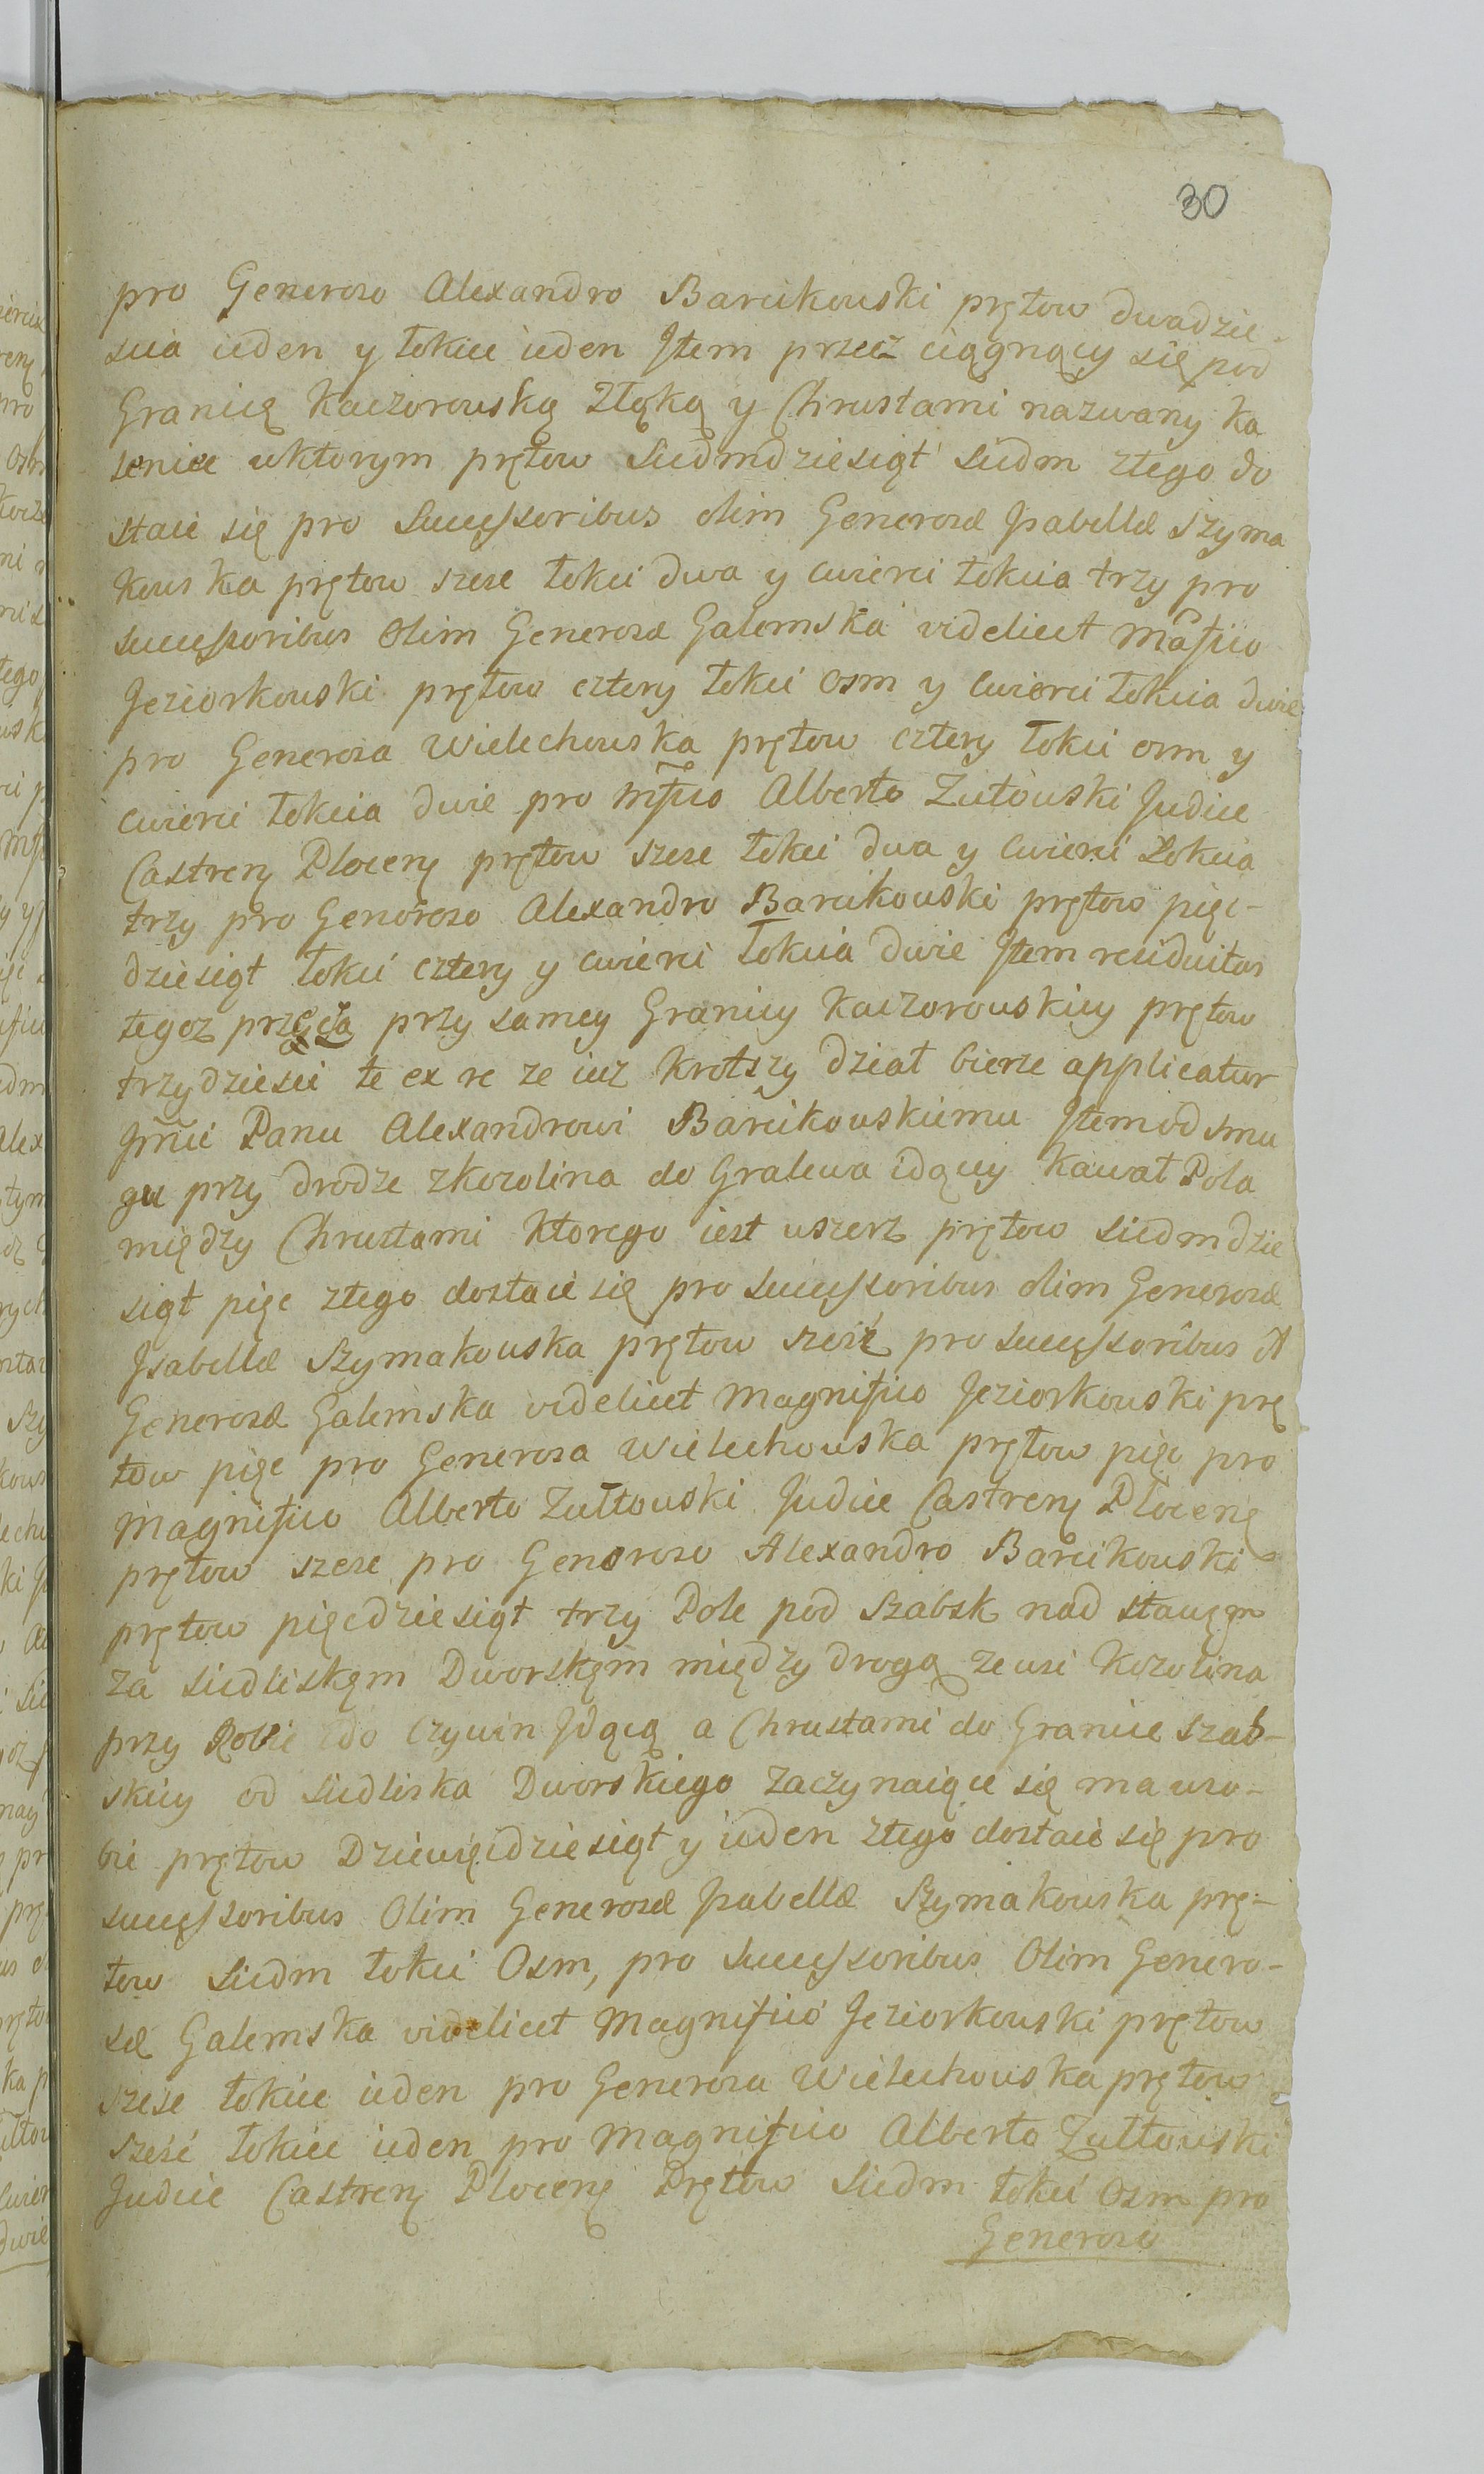 30
pro Generoso Alexandro Barcikowski prętow dwadzie-
scia ieden y łokiec ieden Item przecz ciągnący się pod
Granicą Kaczorowską złąką y Chrustami nazwany ka
senice wktorym prętow siedmdziesiąt siedm ztego do
staie się pro Successoribus olim Generosæ Isabellæ Szyma
kowska prętow szesc łokci dwa y cwierci łokcia trzy pro
Successoribus Olim Generosæ Galemska videlicet Mãfico
Jeziorkowski prętow cztery łokci osm y cwierci łokcia dwie
pro Generosa Wielechowska prętow cztery łokci osm y
cwierci łokcia dwie pro Mfico Alberto Zułtowski Judice
Castren Plocen prętow szesc łokci dwa y cwierci Łokcia
trzy pro Generoso Alexandro Barcikowski prętow pięc-
dziesiąt łokci cztery y cwierci łokcia dwie Item residuitas
tegoz przęcza przy samey Granicy Kaczorowskiey prętow
trzydziesci te ex re ze iuz krotszy dział bierze applicatur
Jmci Panu Alexandrowi Barcikowskiemu Item od smu
gu przy drodze zkozolina do Gralewa idącey kawał Pola
między Chrustami ktorego iest wszerz prętow siedmdzie
siąt pięc ztego dostaie się pro Successoribus olim Generosæ
Isabellæ Szymakowska prętow szesć pro Successoribus
Generosæ Galemska videlicet Magnifico Jeziorkowski prę
tow pięc pro Generosa Wielechowska prętow pięc pro
Magnifico Alberto Zułtowski Judice Castren Plocen
prętow szesc pro Generoso Alexandro Barcikowski
prętow pięcdziesiąt trzy Pole pod Szabsk nad stawęm
za siedliskęm Dworskęm między drogą ze wsi Kozolina
przy do Czywin Idącą a Chrustami do Granice Szab-
skiey od siedliska Dworskiego Zaczynaiące się ma wso-
bie prętow Dziewięcdziesiąt y ieden ztego dostaie się pro
successoribus Olim Generosæ Isabellæ Szymakowska prę-
tow siedm łokci Osm, pro Successoribus Olim Genero-
sæ Galemska videlicet Magnifico Jeziorkowski prętow
szesc łokiec ieden pro Generosa Wielechowska prętow
szesć łokiec ieden pro Magnifico Alberto Zułtowski
Judice Castren Plocen Prętow siedm łokci Osm pro
Generoso